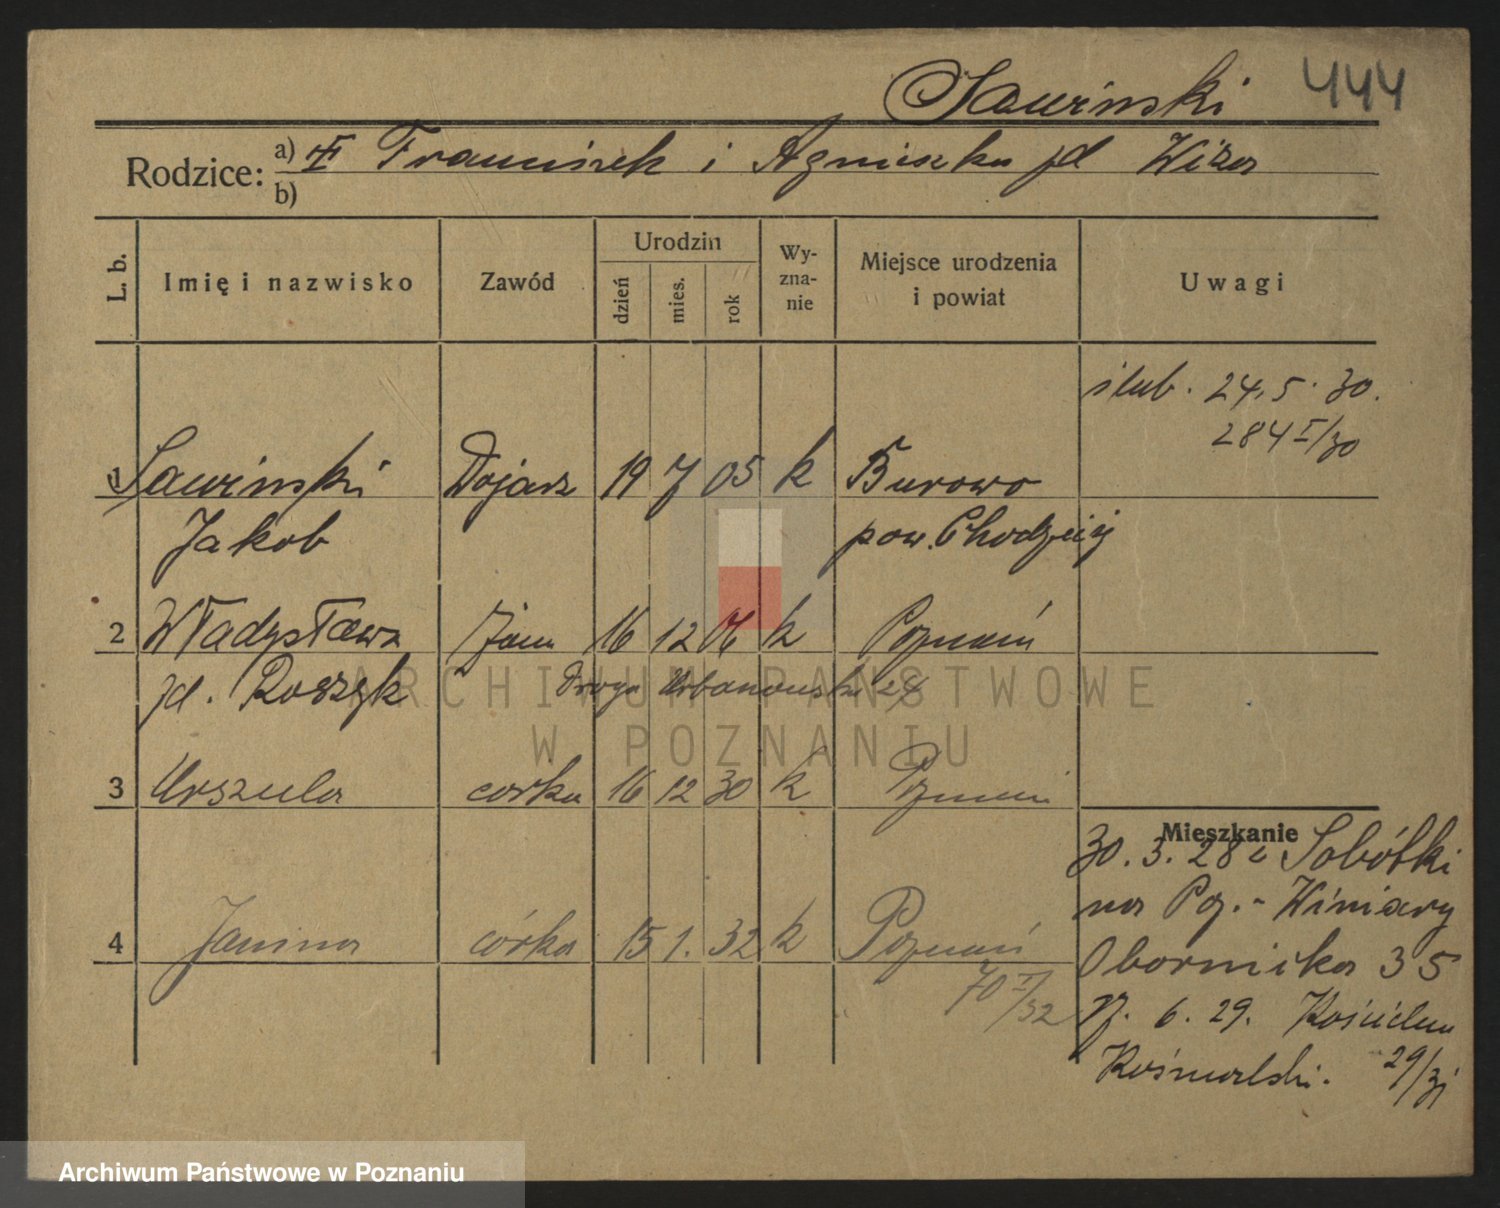 Sawinski 444
Rodzice: a) Franciszek i Agnieszka zd Wiza
b)
L. b. Imię i nazwisko Zawód Urodzin dzień mies. rok Wyznanie Miejsce urodzenia i powiat Uwagi
ślub. 24.5.30.
284 I/30
1 Sawinski Dojarz 19 7 05 k Burowo
Jakob pow. Chodzież
2 Władysława żona 16 12 06 k Poznań
zd. Roszyk Droga Urbanowska 24
3 Urszula corka 16 12 30 k Poznań
Mieszkanie
30.3.28 z Sobótki
na Poz.- Winiary
4 Janina córka 15 1. 32 k Poznań
Obornicka 35
70 I/32
6.29. Kościelna
29/31
ARCHIWUM PAŃSTWOWE
W POZNANIU
Archiwum Państwowe w Poznaniu